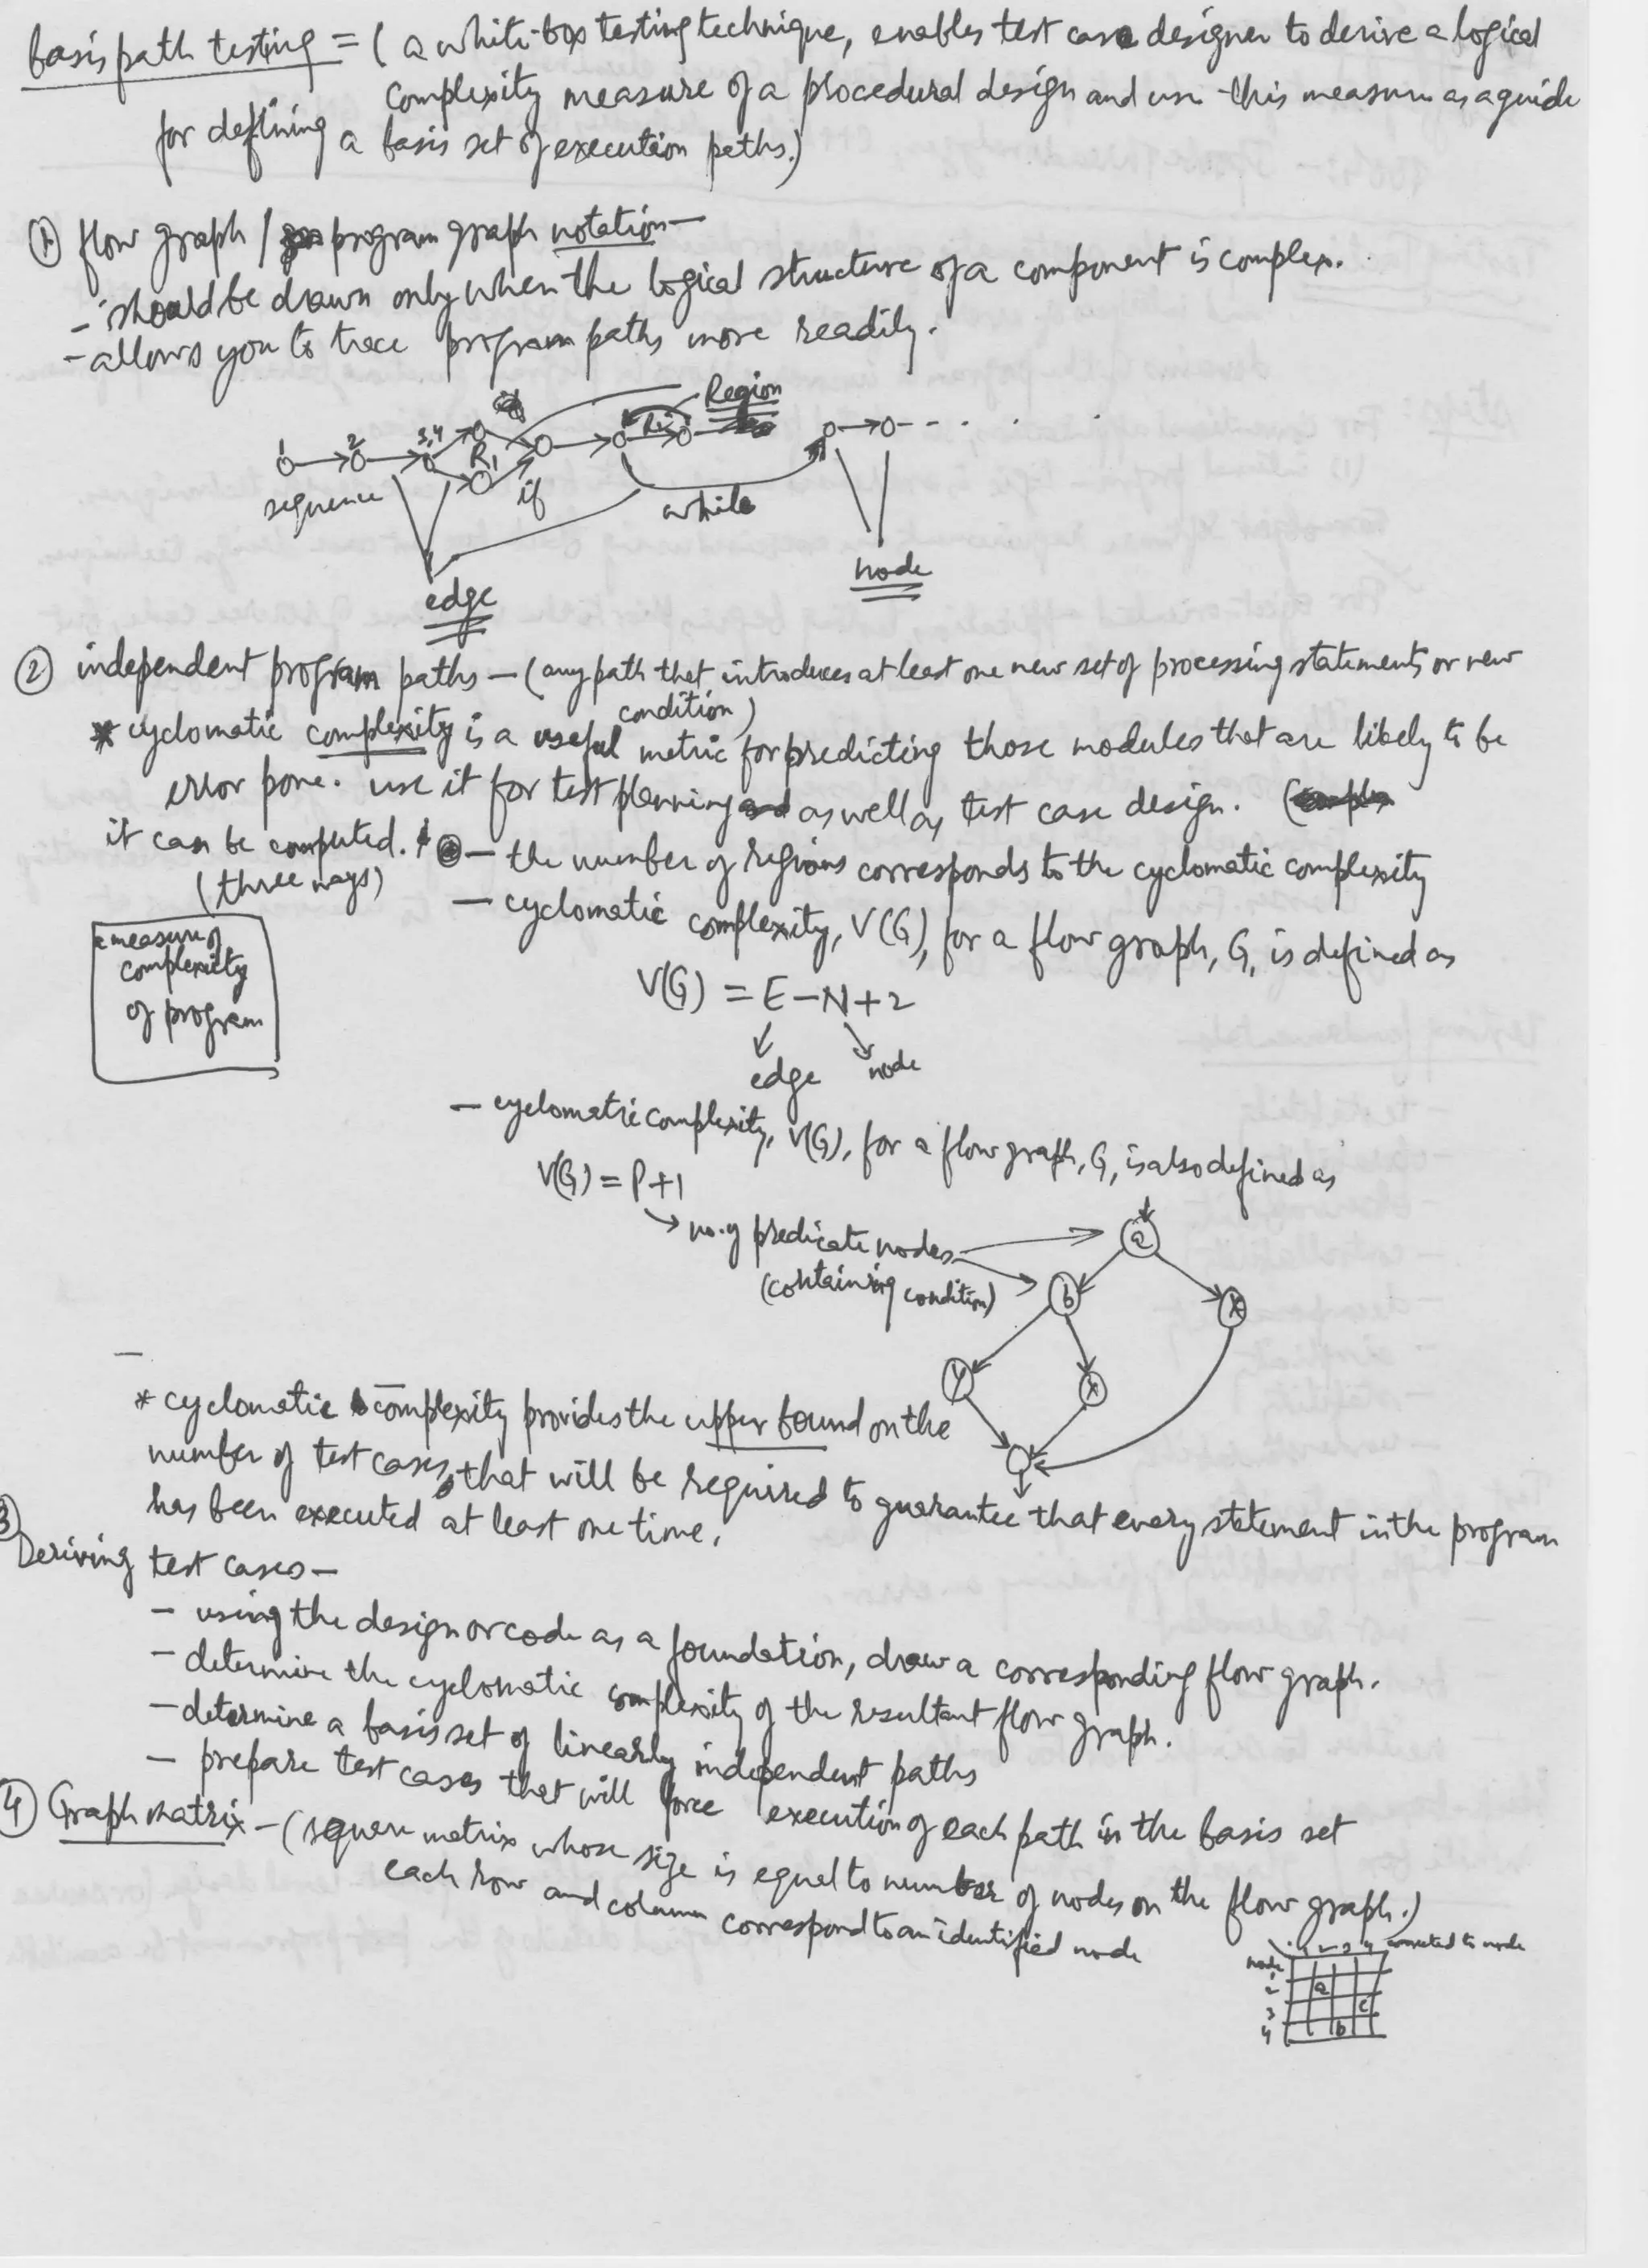 basis path testing = ( a white-box testing technique, enables test case designer to derive a logical
complexity measure of a procedural design and use this measure as a guide
for defining a basis set of execution paths.)
① flow graph / program graph notation —
- should be drawn only when the logical structure of a component is complex.
- allows you to trace program paths more readily.
Region
1 2 3,4 R1 R2
sequence if while
edge node
② independent program paths — (any path that introduces at least one new set of processing statements or new
condition)
* cyclomatic complexity is a useful metric for predicting those modules that are likely to be
error pone. use it for test planning as well as test case design.
it can be computed. — the number of regions corresponds to the cyclomatic complexity
(three ways)
— cyclomatic complexity, V(G), for a flow graph, G, is defined as
a measure of
complexity
of program
V(G) = E - N + 2
edge node
— cyclomatric complexity, V(G), for a flow graph, G, is also defined as
V(G) = P + 1
no. of predicate nodes
(containing condition)
a
b x
y x
* cyclomatic complexity provides the upper bound on the
number of test cases, that will be required to guarantee that every statement in the program
has been executed at least one time.
③
Deriving test cases —
- using the design or code as a foundation, draw a corresponding flow graph.
- determine the cyclomatic complexity of the resultant flow graph.
- determine a basis set of linearly independent paths
- prepare test cases that will force execution of each path in the basis set
④ Graph matrix — (square matrix whose size is equal to number of nodes on the flow graph.)
each row and column correspond to an identified node
1 2 3 4 connected to node
node
1
2 a
3 c
4 b